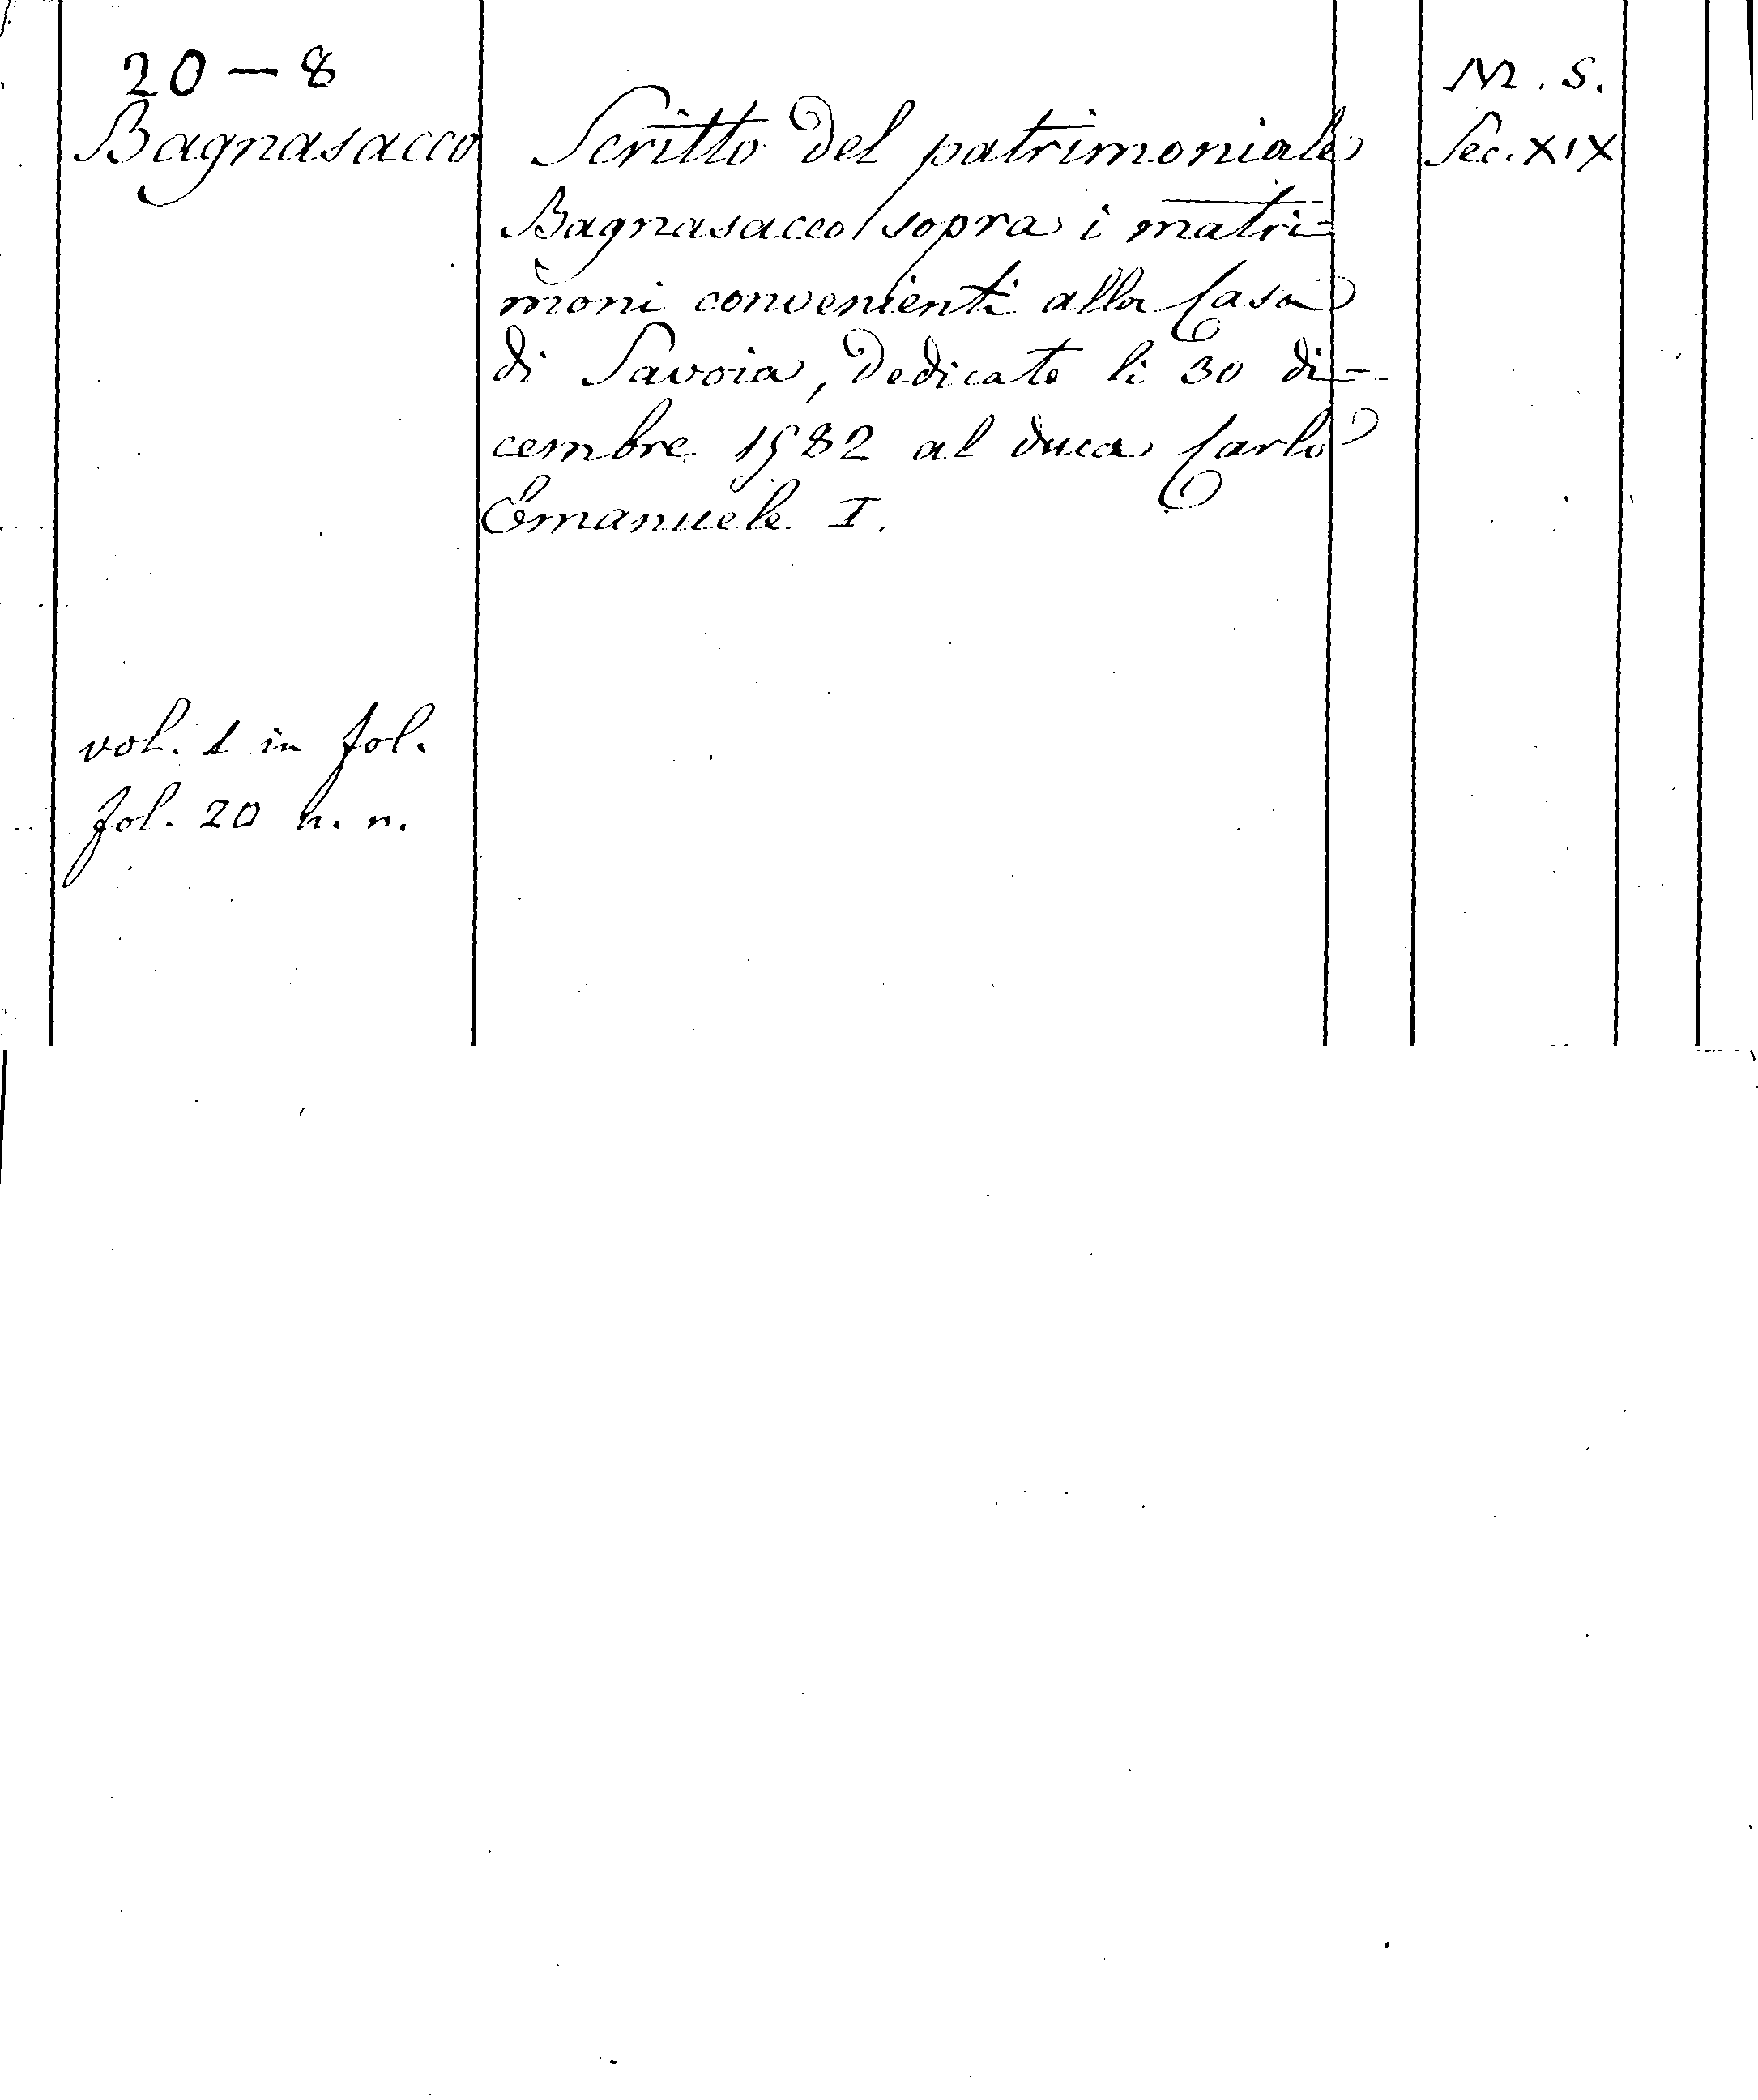 20 — 8
Bagnasacco
vol. 1 in fol.
fol. 20 n. n.
Scritto del patrimoniale
Bagnasacco sopra i matri=
moni convenienti alla Casa
di Savoia, dedicato li 30 di=
cembre 1582 al duca Carlo
Emanuele I.
M. S.
Sec. XIX